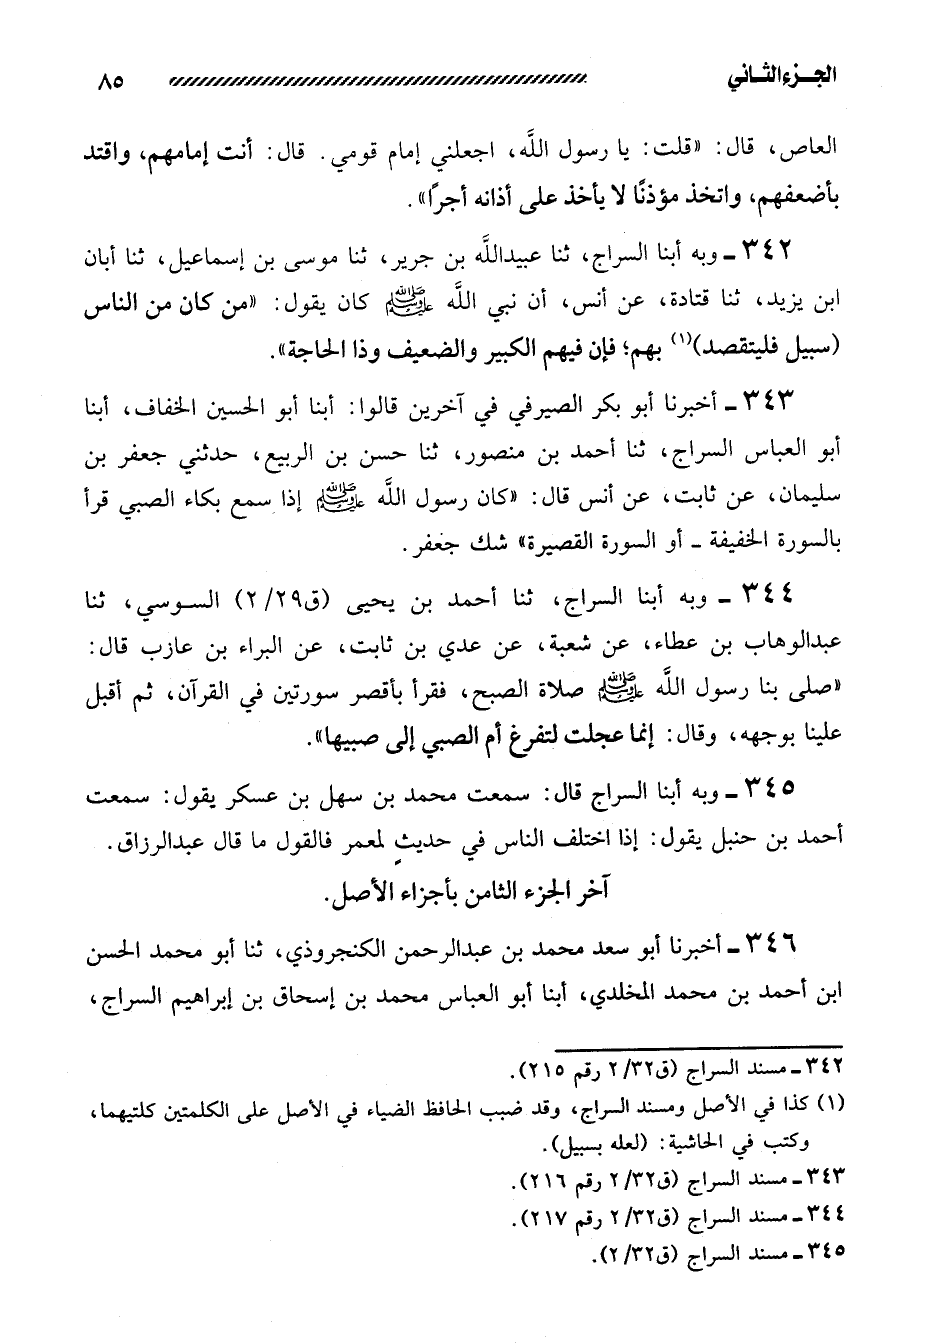 الجـزء الثـاني ٨٥
العاص، قال: «قلت: يا رسول اللَّه، اجعلني إمام قومي. قال: أنت إمامهم، واقتد
بأضعفهم، واتخذ مؤذنًا لا يأخذ على أذانه أجرًا».
٣٤٢ ـ وبه أبنا السراج، ثنا عبيداللَّه بن جرير، ثنا موسى بن إسماعيل، ثنا أبان
ابن يزيد، ثنا قتادة، عن أنس، أن نبي اللَّه ﷺ كان يقول: «من كان من الناس
(سبيل فليتقصد)(١) بهم؛ فإن فيهم الكبير والضعيف وذا الحاجة».
٣٤٣ ـ أخبرنا أبو بكر الصيرفي في آخرين قالوا: أبنا أبو الحسين الخفاف، أبنا
أبو العباس السراج، ثنا أحمد بن منصور، ثنا حسن بن الربيع، حدثني جعفر بن
سليمان، عن ثابت، عن أنس قال: «كان رسول اللَّه ﷺ إذا سمع بكاء الصبي قرأ
بالسورة الخفيفة ـ أو السورة القصيرة» شك جعفر.
٣٤٤ ـ وبه أبنا السراج، ثنا أحمد بن يحيى (ق٢٩/ ٢) السـوسي، ثنا
عبدالوهاب بن عطاء، عن شعبة، عن عدي بن ثابت، عن البراء بن عازب قال:
«صلى بنا رسول اللَّه ﷺ صلاة الصبح، فقرأ بأقصر سورتين في القرآن، ثم أقبل
علينا بوجهه، وقال: إنما عجلت لتفرغ أم الصبي إلى صبيها».
٣٤٥ ـ وبه أبنا السراج قال: سمعت محمد بن سهل بن عسكر يقول: سمعت
أحمد بن حنبل يقول: إذا اختلف الناس في حديثٍ لمعمر فالقول ما قال عبدالرزاق.
آخر الجزء الثامن بأجزاء الأصل.
٣٤٦ ـ أخبرنا أبو سعد محمد بن عبدالرحمن الكنجروذي، ثنا أبو محمد الحسن
ابن أحمد بن محمد المخلدي، أبنا أبو العباس محمد بن إسحاق بن إبراهيم السراج،
٣٤٢ ـ مسند السراج (ق٣٢/ ٢ رقم ٢١٥).
(١) كذا في الأصل ومسند السراج، وقد ضبب الحافظ الضياء في الأصل على الكلمتين كلتيهما،
وكتب في الحاشية: (لعله بسبيل).
٣٤٣ ـ مسند السراج (ق٣٢/ ٢ رقم ٢١٦).
٣٤٤ ـ مسند السراج (ق٣٢/ ٢ رقم ٢١٧).
٣٤٥ ـ مسند السراج (ق٣٢/ ٢).